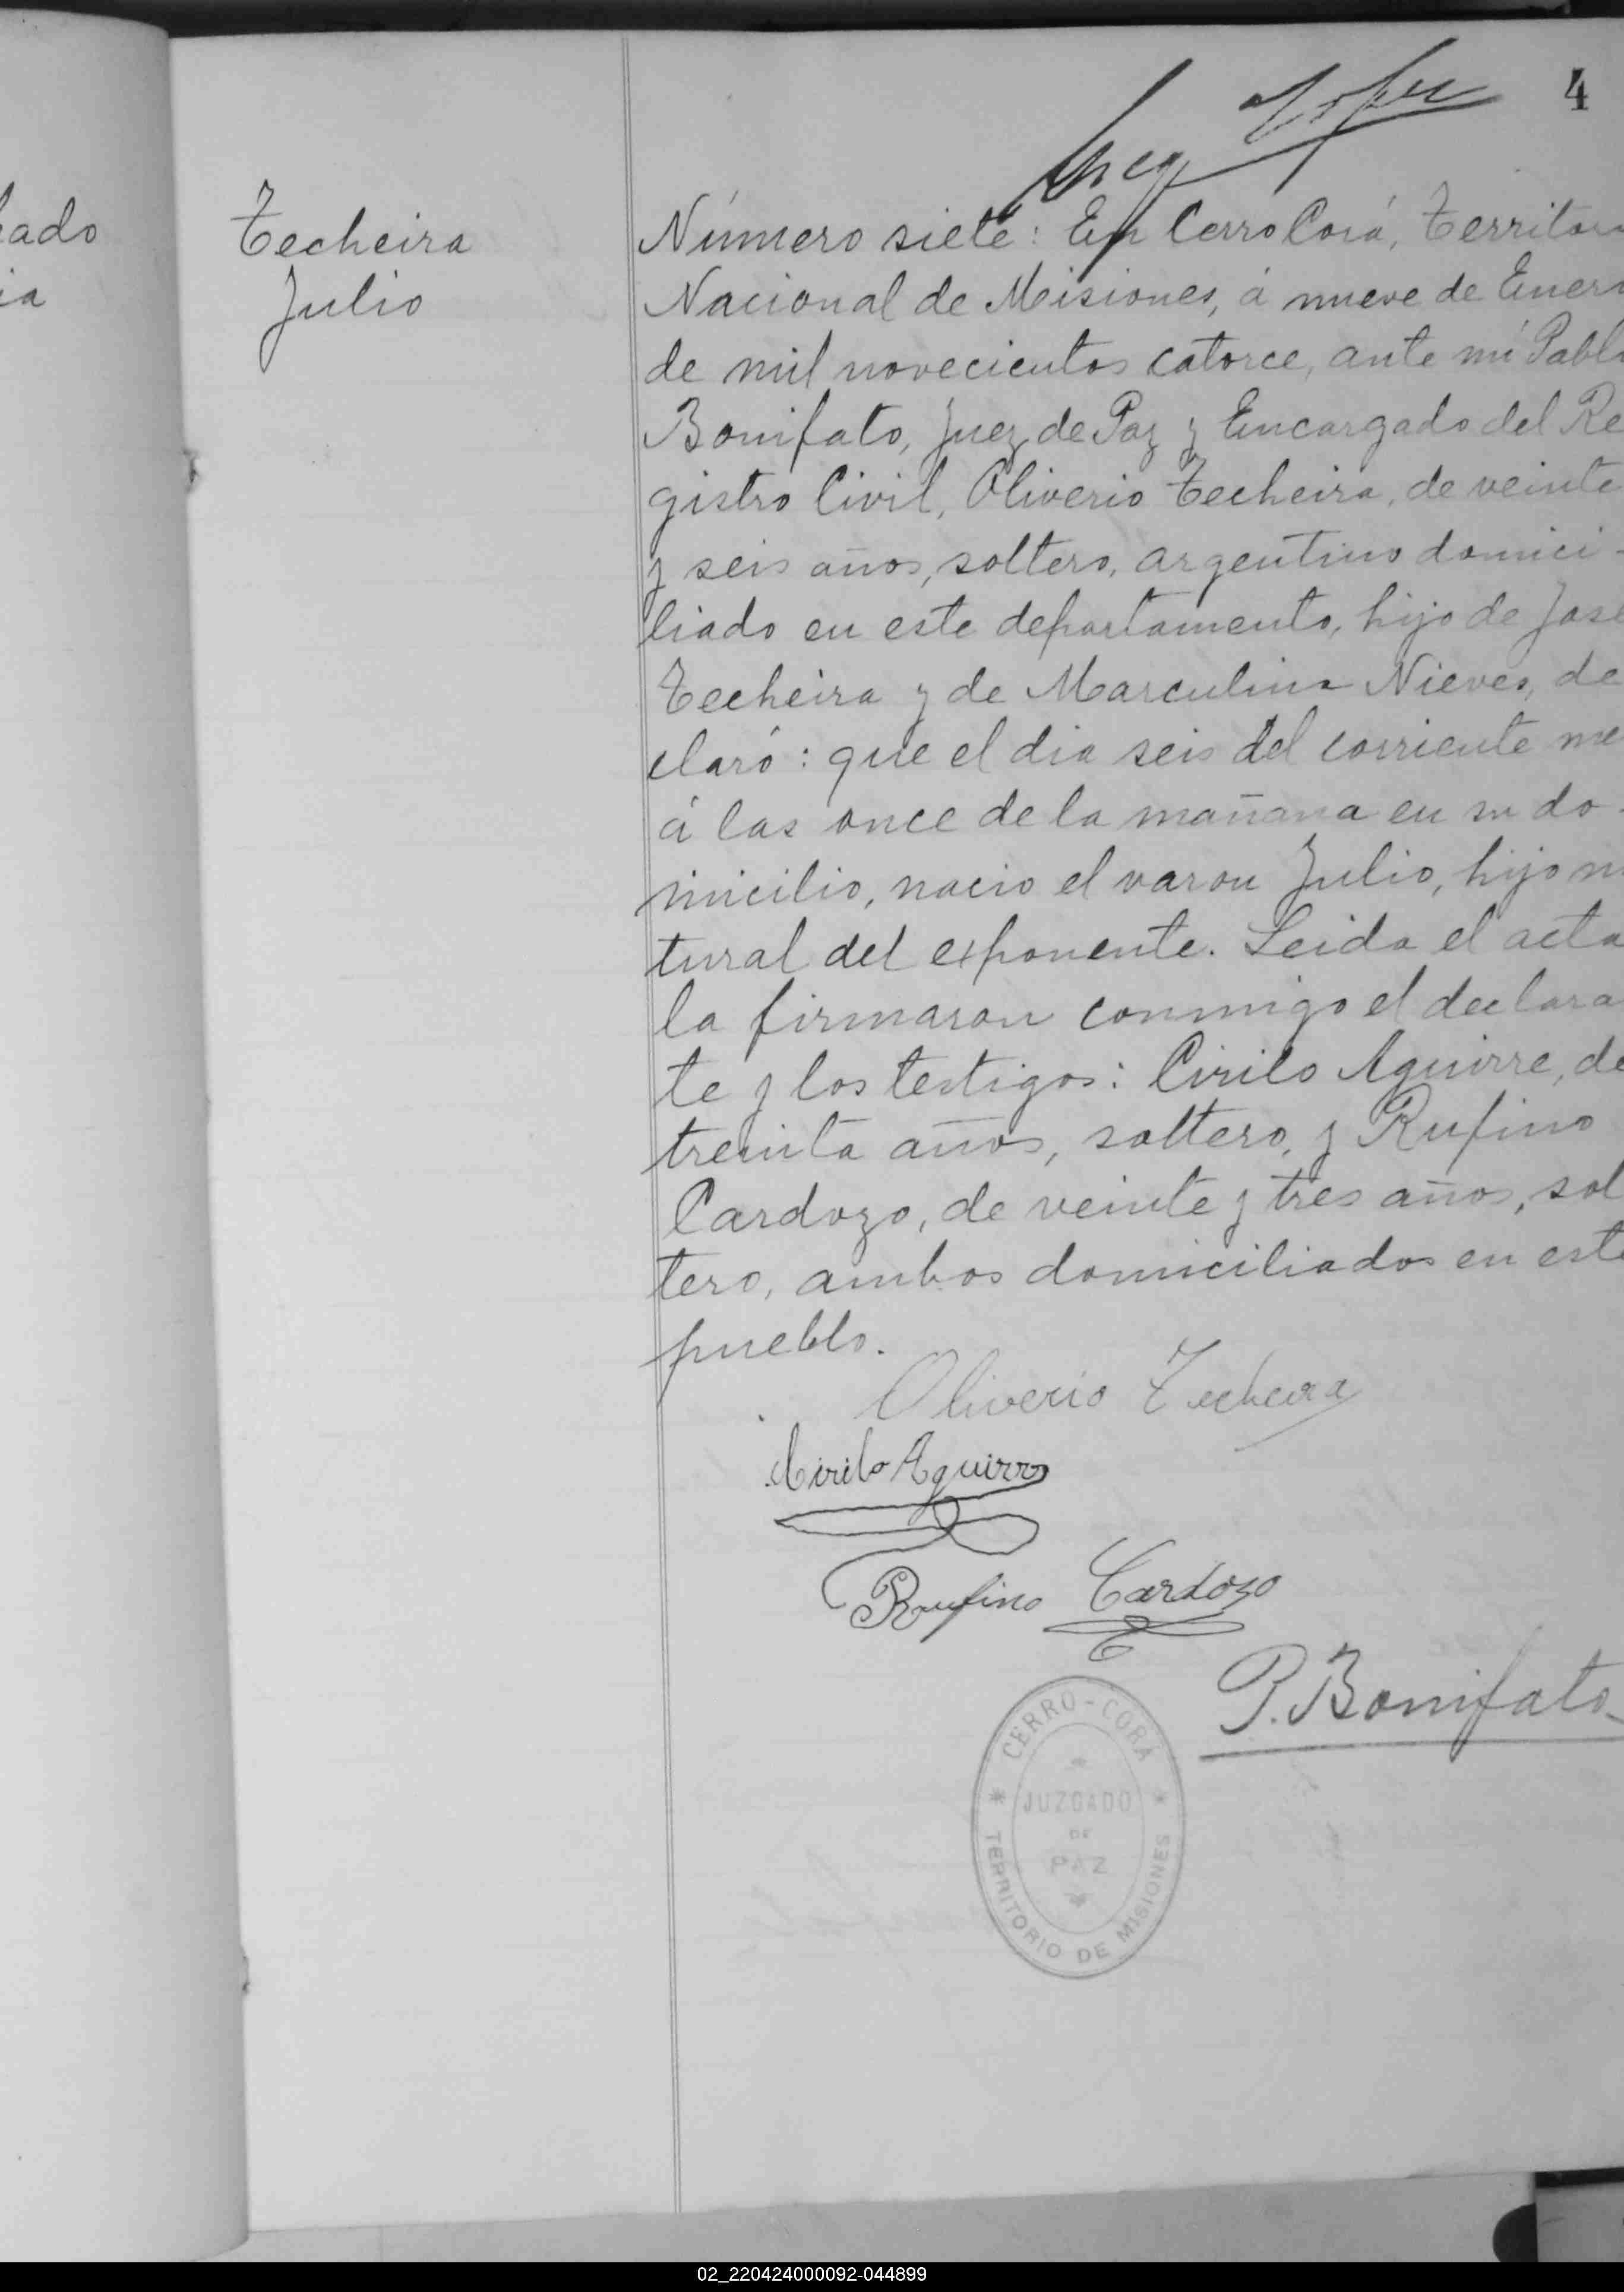 4
ado
ia
Techeira
Julio
Número siete: En Cerro Corá, Territor
Nacional de Misiones, á nueve de Ener
de mil novecientos catorce, ante mí Pabl
Bonifato, Juez de Paz y Encargado del Re
gistro Civil, Oliverio Techeira, de veinte
y seis años, soltero, argentino domici-
liado en este departamento, hijo de José
Techeira y de Marculina Nieves, de
claró: que el dia seis del corriente me
á las once de la mañana en su do-
micilio, nacio el varon Julio, hijo n
tural del exponente. Leida el acta
la firmaron conmigo el declara
te y los testigos: Cirilo Aguirre, de
treinta años, soltero, y Rufino
Cardozo, de veinte y tres años, sol
tero, ambos domiciliados en este
pueblo.
Oliverio Techeira
Cirilo Aguirre
Rufino Cardozo
P. Bonifato
CERRO-CORÁ
JUZGADO
DE
PAZ
TERRITORIO DE MISIONES
02_220424000092-044899